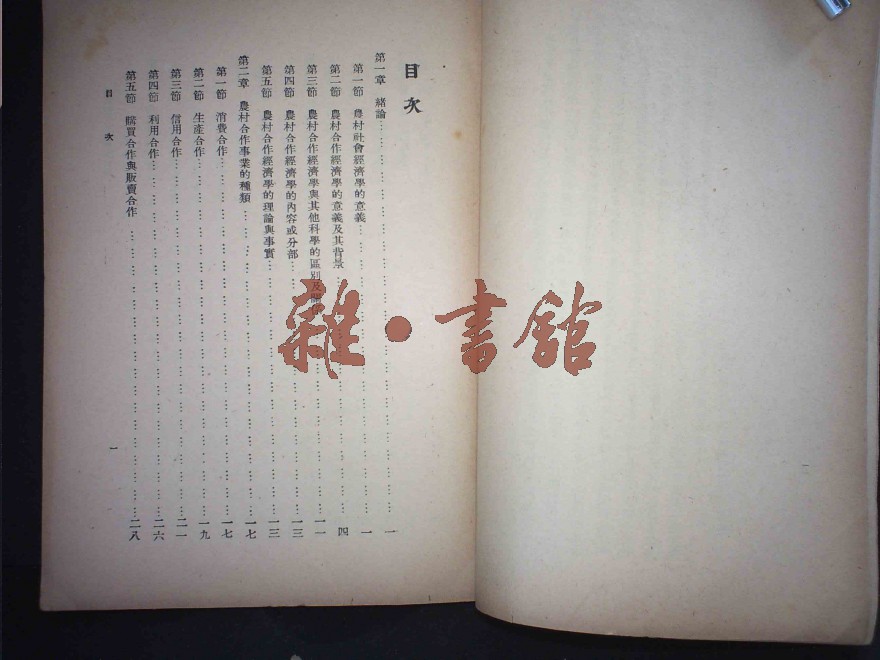 目次
第一章 緒論…一
第一節 農村社會經濟學的意義…一
第二節 農村合作經濟學的意義及其背景…四
第三節 農村合作經濟學與其他科學的區別及…一一
第四節 農村合作經濟學的內容或分部…一三
第五節 農村合作經濟學的理論與事實…一三
第二章 農村合作事業的種類…一七
第一節 消費合作…一七
第二節 生產合作…一九
第三節 信用合作…二一
第四節 利用合作…二六
第五節 購買合作與販賣合作…二八
目次
一
雜·書館